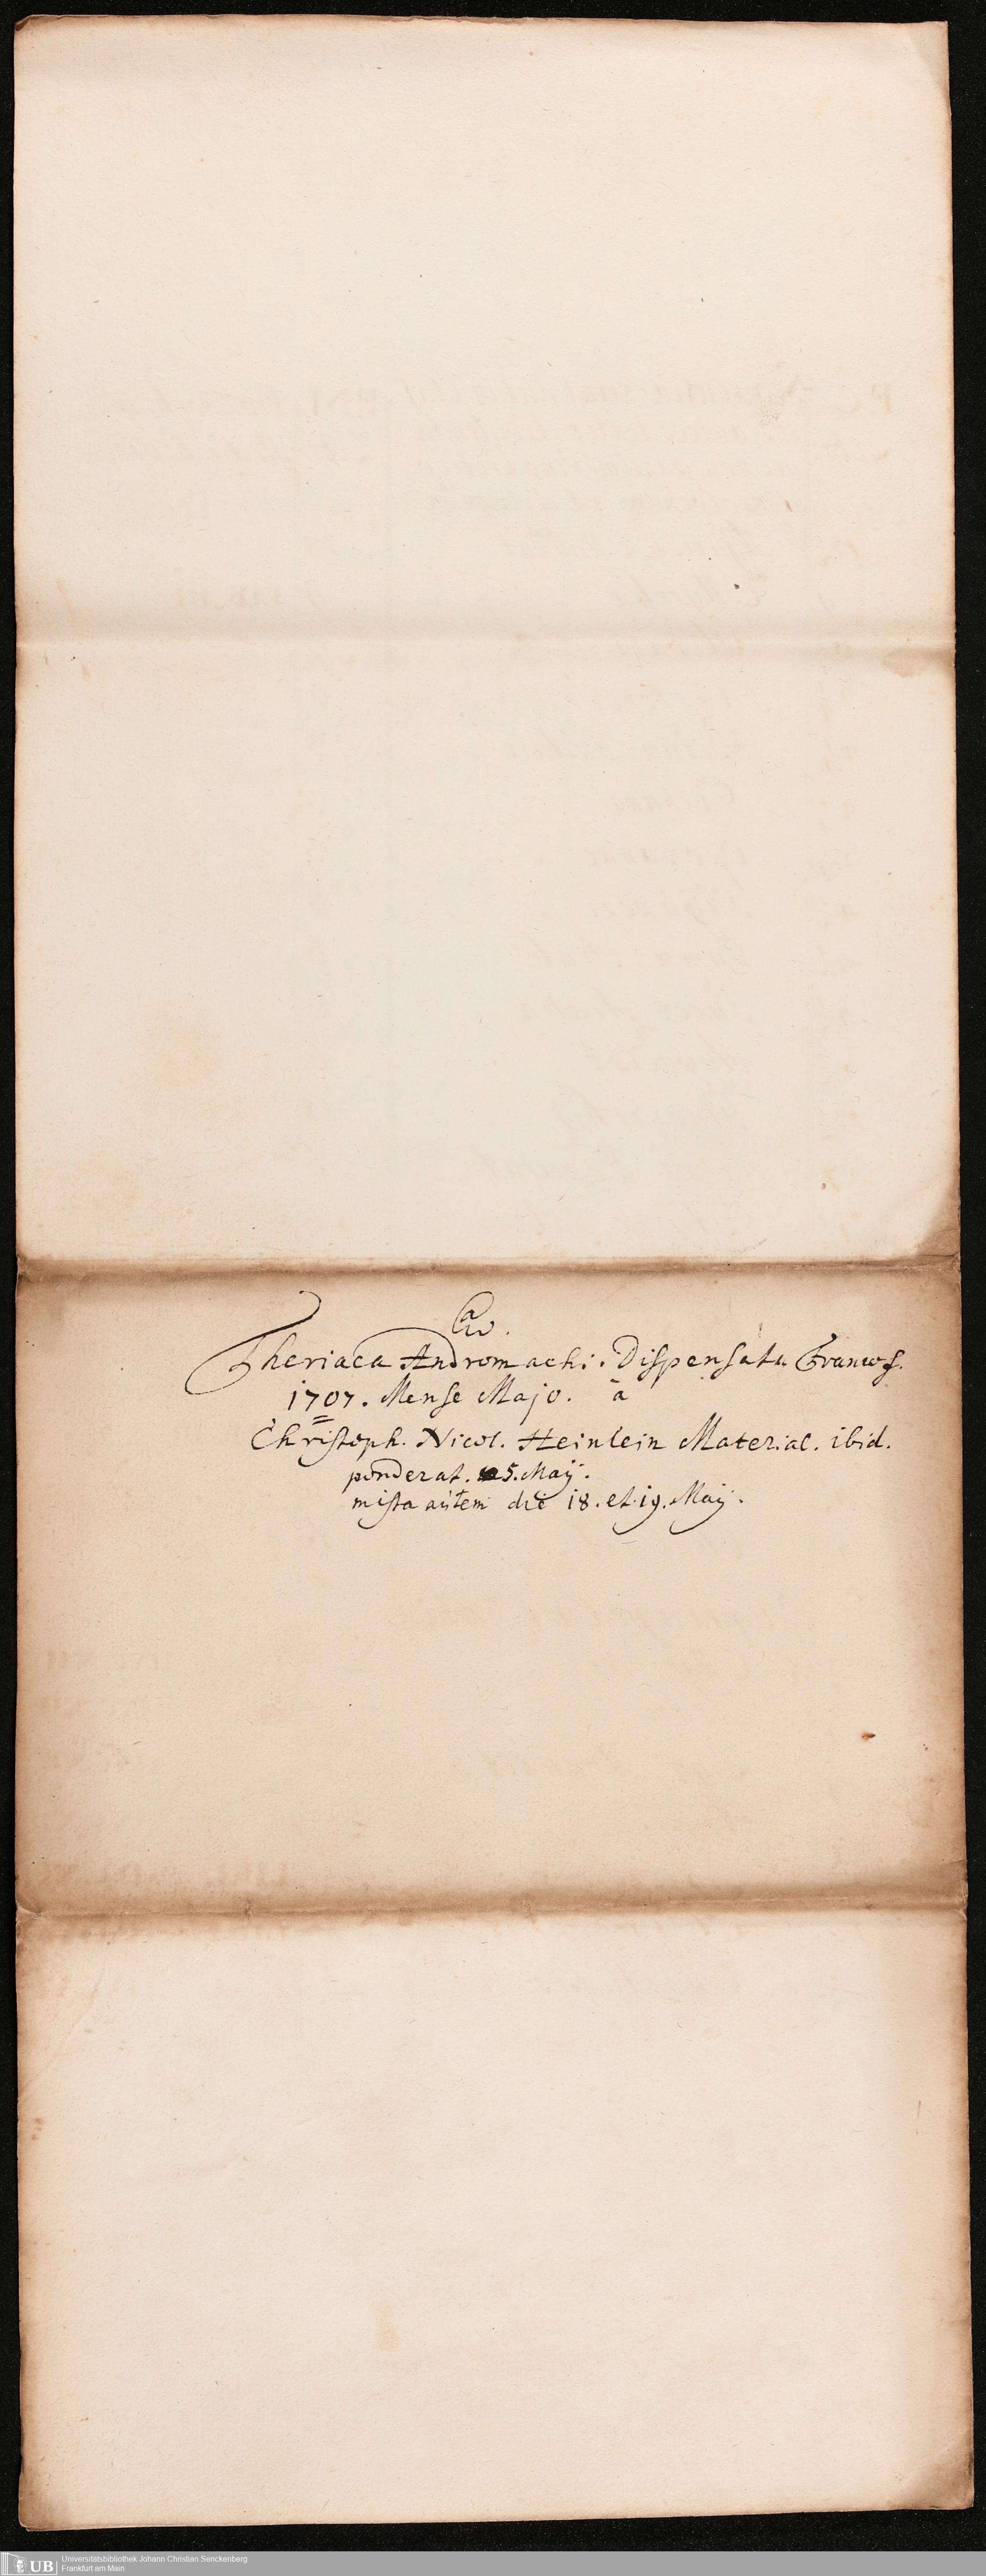 Theriaca Andromachi. Dispensata Francof.
1707. Mense Majo. à
Christoph. Nicol. Heinlein Material. ibid.
ponderat. 5. Maÿ.
mista autem die 18. et 19. Maÿ.
UB Universitätsbibliothek Johann Christian Senckenberg
Frankfurt am Main